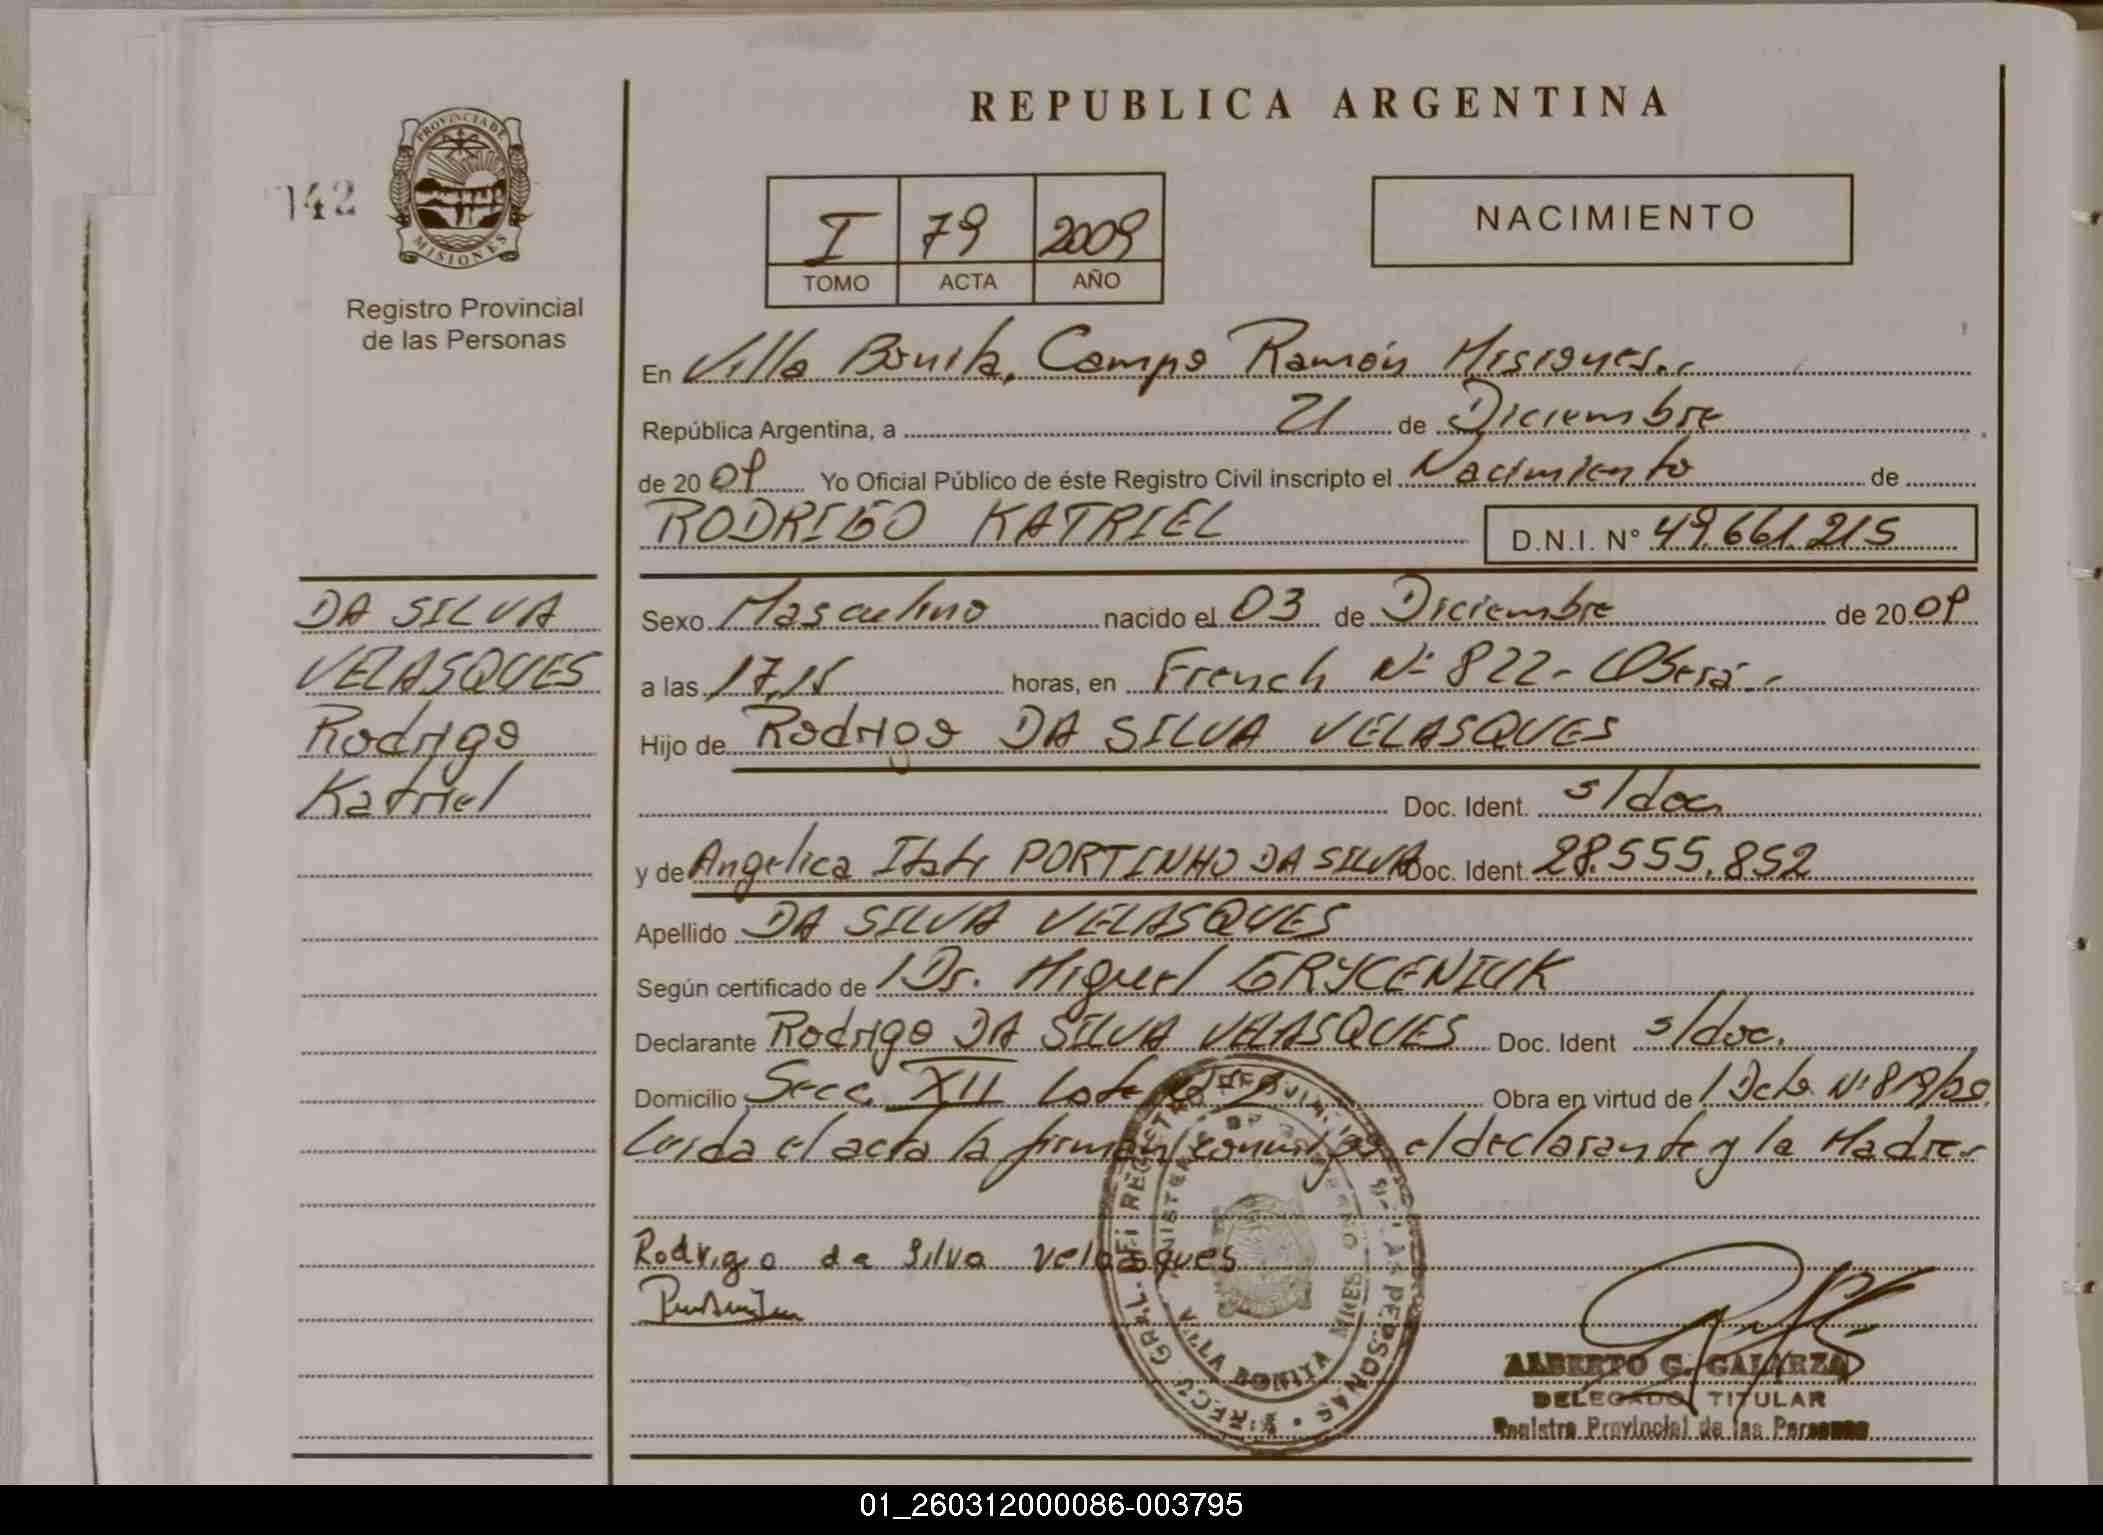 REPUBLICA ARGENTINA
142
PROVINCIA DE
MISIONES
Registro Provincial
de las Personas
I 79 2009
TOMO ACTA AÑO
NACIMIENTO
En Villa Bonita, Campo Ramón Misiones.-
República Argentina, a 21 de Diciembre
de 2009 Yo Oficial Público de éste Registro Civil inscripto el Nacimiento de
RODRIGO KATRIEL D.N.I. N° 49.661.215
DA SILVA
VELASQUES
Rodrigo
Katriel
Sexo Masculino nacido el 03 de Diciembre de 2009
a las 17,15 horas, en French Nº 822- Oberá.-
Hijo de Rodrigo DA SILVA VELASQUES
Doc. Ident. s/doc.
y de Angelica Itati PORTINHO DA SILVA Doc. Ident. 28.555.852
Apellido DA SILVA VELASQUES
Según certificado de Dr. Miguel GRYCENIUK
Declarante Rodrigo DA SILVA VELASQUES Doc. Ident s/doc.
Domicilio Secc. XII Lote Obra en virtud de Dcto. Nº 819/09.
Leida el acta la firman conmigo el declarante y la Madre-
Rodrigo da Silva Velasques
VILLA BONITA MNES
ALBERTO G. GALARZA
DELEGADO TITULAR
Registro Provincial de las Personas
01_260312000086-003795